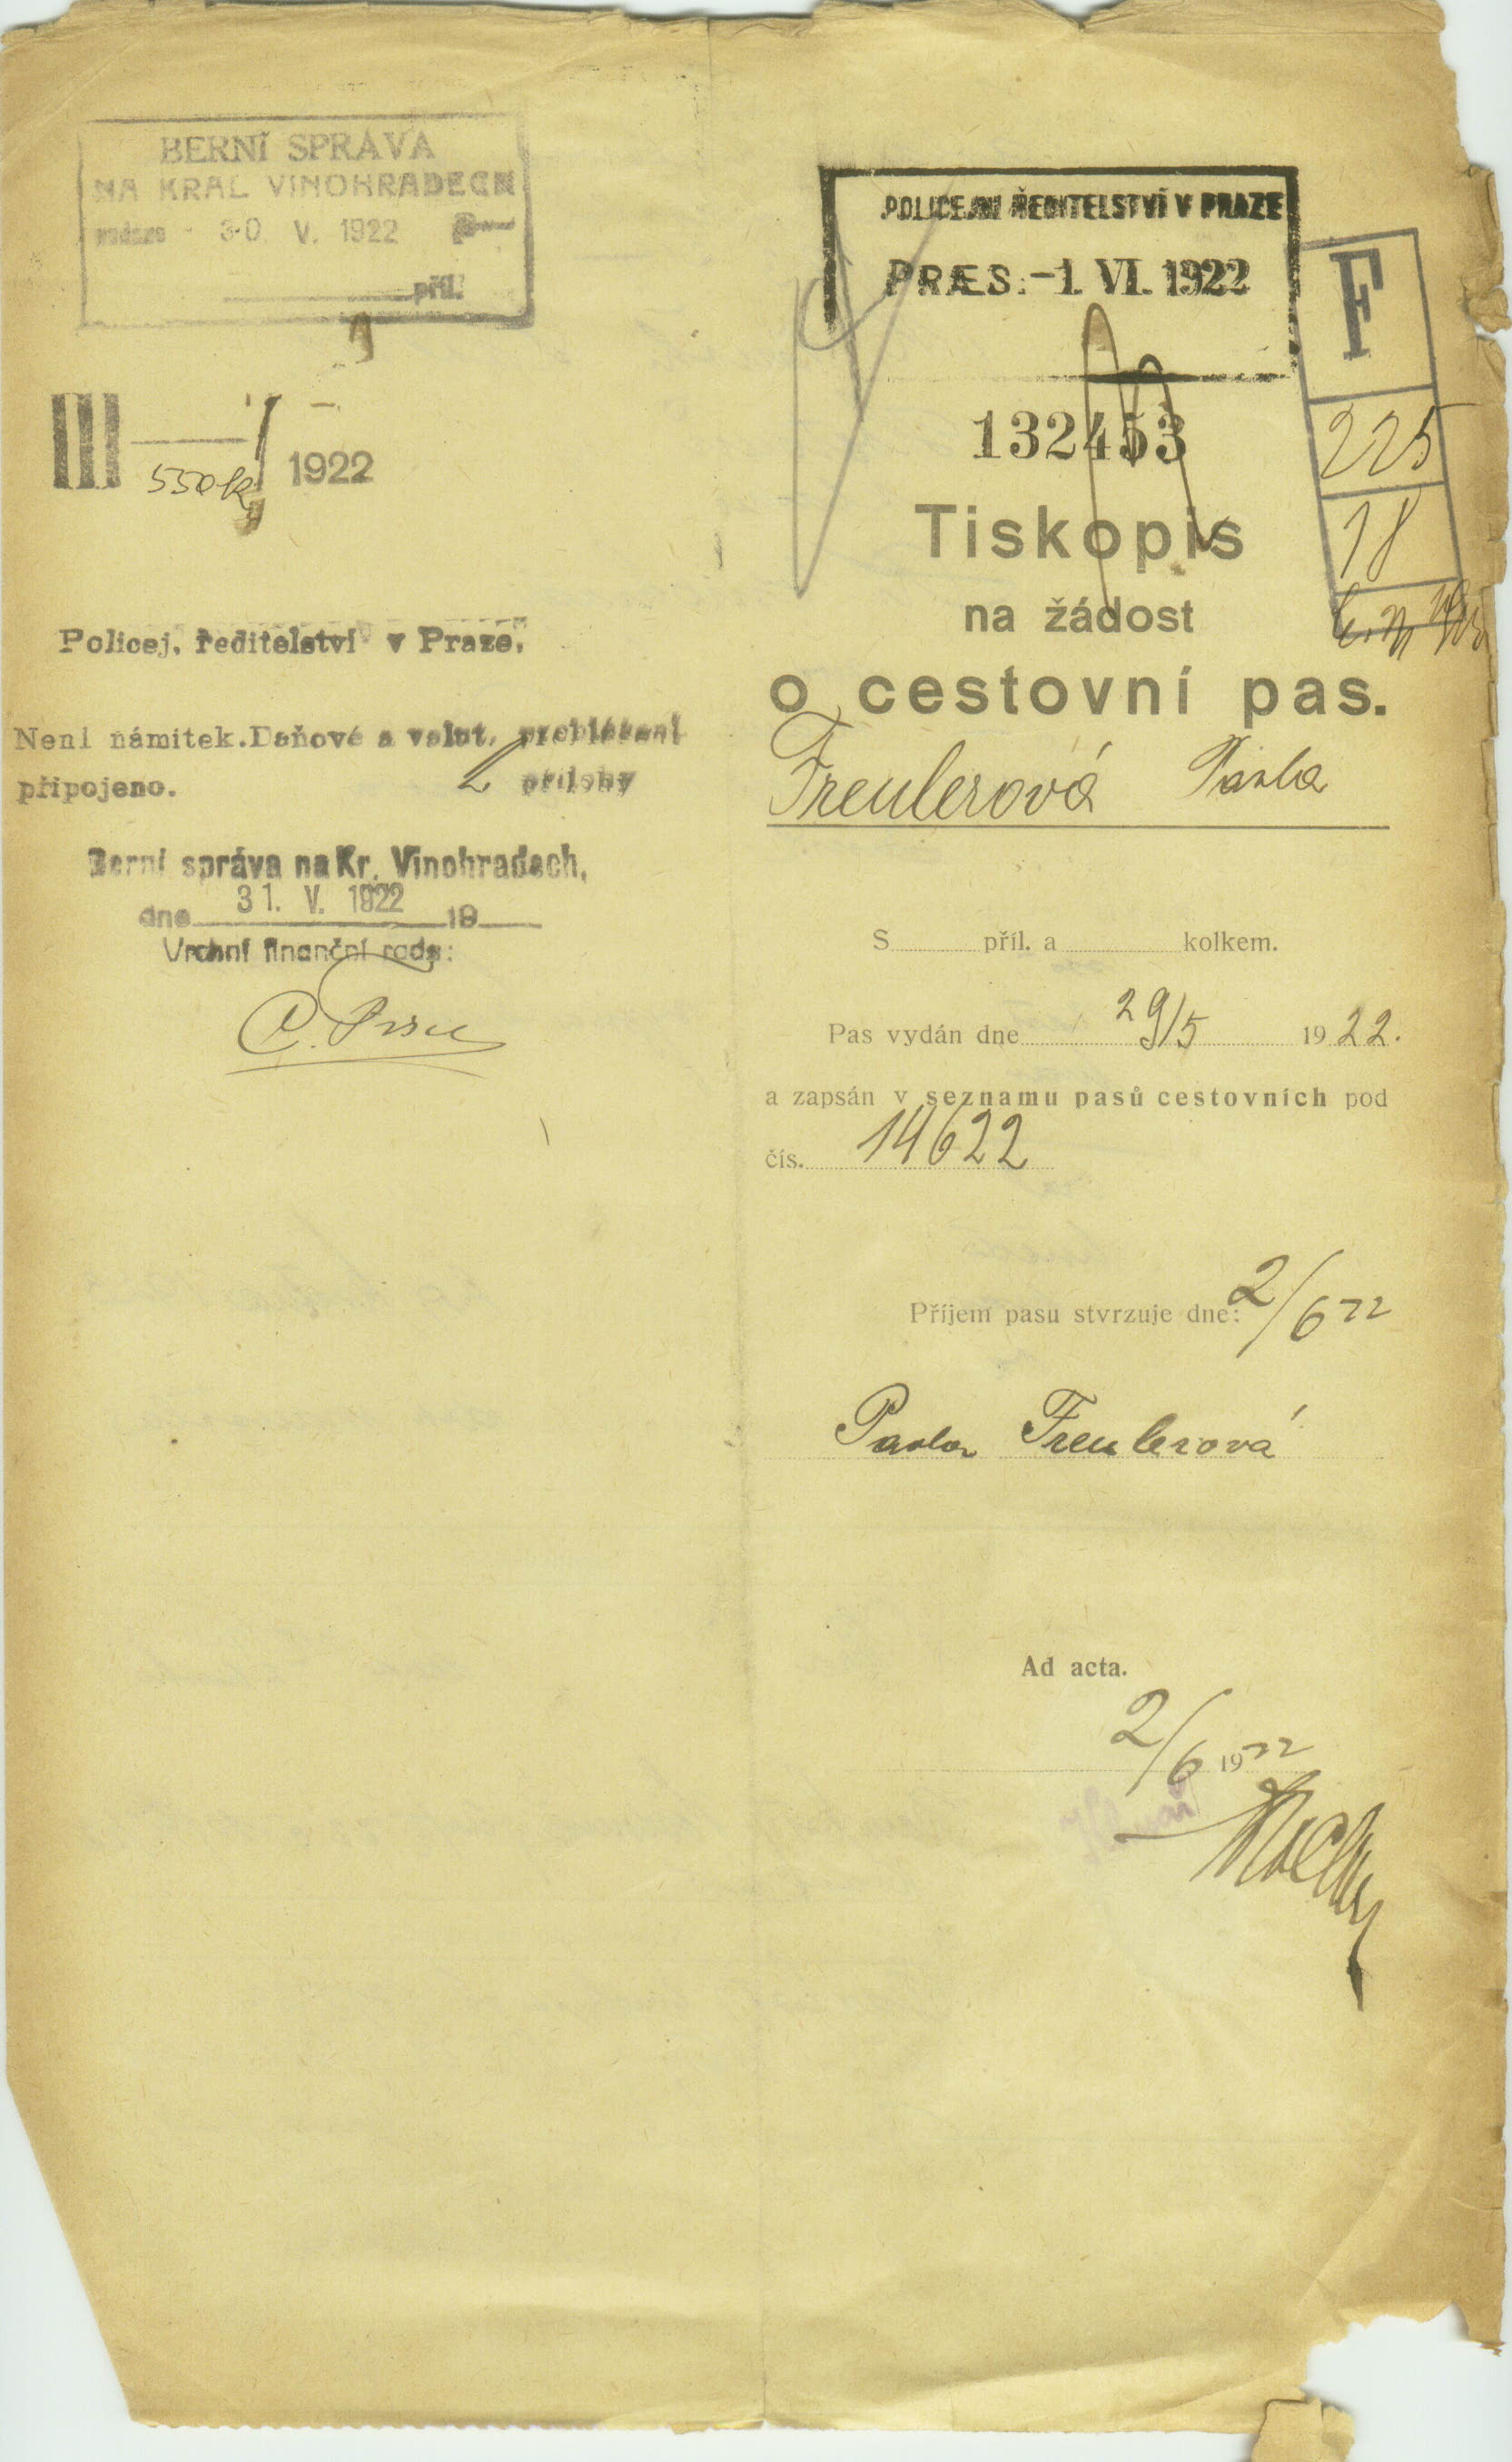 BERNÍ SPRÁVA
NA KRAL VINOHRADECH
30. V. 1922
příl.
III
550k 1922
Policej. ředitelství v Praze.
Není námitek. Daňové a valut. prohlášení
připojeno. 2 přílohy
Berní správa na Kr. Vinohradech,
dne 31. V. 1922 19
Vrchní finanční rada:
POLICEJNÍ ŘEDITELSTVÍ V PRAZE
PRÆS. -1. VI. 1922
132453
F
225
18
Tiskopis
na žádost
o cestovní pas.
Freulerová Pavla
S příl. a kolkem.
Pas vydán dne 29/5 1922.
a zapsán v seznamu pasů cestovních pod
čís. 14622
Příjem pasu stvrzuje dne: 2/6 22
Pavla Freulerová
Ad acta.
2/6 1922